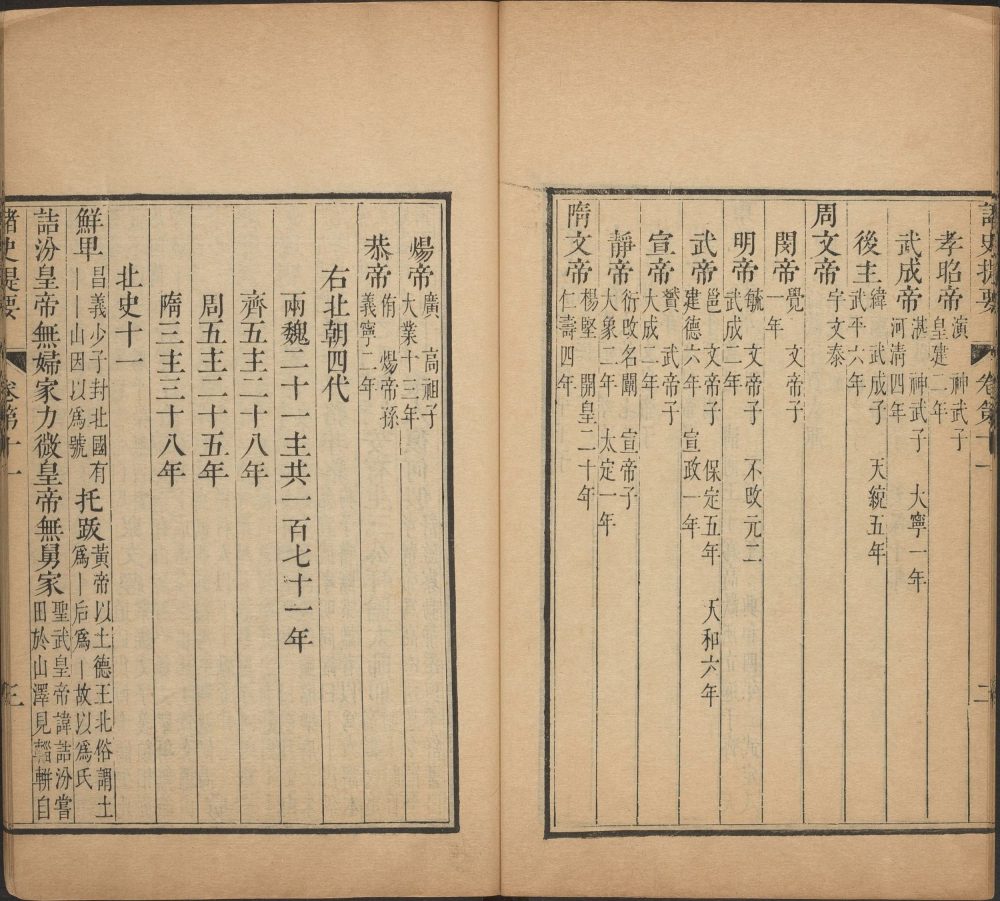 諸史提要 卷第十一 二
孝昭帝 演 神武子 皇建二年
武成帝 湛 神武子 大寧一年 河清四年
後主 緯 武成子 天統五年 武平六年
周文帝 宇文泰
閔帝 覺 文帝子 一年
明帝 毓 文帝子 不改元二 武成二年
武帝 邕 文帝子 保定五年 天和六年 建德六年 宣政一年
宣帝 贇 武帝子 大成二年
靜帝 衍改名闡 宣帝子 大象二年 太定一年
隋文帝 楊堅 開皇二十年 仁壽四年
煬帝 廣 高祖子 大業十三年
恭帝 侑 煬帝孫 義寧二年
右北朝四代
兩魏二十一主共一百七十一年
齊五主二十八年
周五主二十五年
隋三主三十八年
北史十一
鮮卑 昌義少子封北國有｜｜山因以爲號 托跋 黃帝以土德王北俗謂土爲｜后爲｜故以爲氏
詰汾皇帝無婦家力微皇帝無舅家 聖武皇帝諱詰汾嘗田於山澤見輜軿自
諸史提要 卷第十一 三